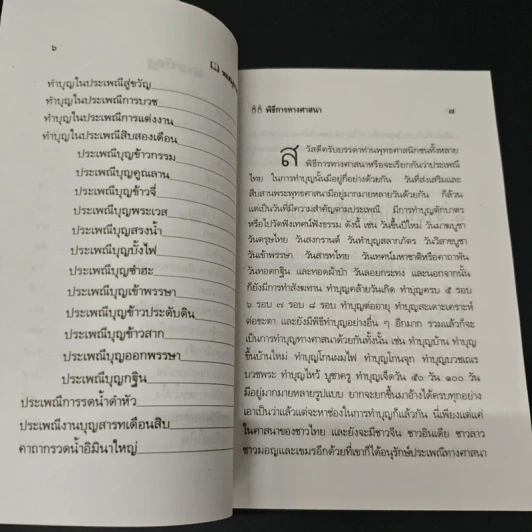 ๖
ทำบุญในประเพณีสู่ขวัญ
ทำบุญในประเพณีการบวช
ทำบุญในประเพณีการแต่งงาน
ทำบุญในประเพณีสิบสองเดือน
ประเพณีบุญข้าวกรรม
ประเพณีบุญคูณลาน
ประเพณีบุญข้าวจี่
ประเพณีบุญพระเวส
ประเพณีบุญสรงน้ำ
ประเพณีบุญบั้งไฟ
ประเพณีบุญซำฮะ
ประเพณีบุญเข้าพรรษา
ประเพณีบุญข้าวประดับดิน
ประเพณีบุญข้าวสาก
ประเพณีบุญออกพรรษา
ประเพณีบุญกฐิน
ประเพณีการรดน้ำดำหัว
ประเพณีงานบุญสารทเดือนสิบ
คาถากรวดน้ำอิมินาใหญ่
พิธีการทางศาสนา ๗
สวัสดีครับบรรดาท่านพุทธศาสนิกชนทั้งหลาย
พิธีการทางศาสนาหรือจะเรียกกันว่าประเพณี
ไทย ในการทำบุญนั้นมีอยู่กี่อย่างด้วยกัน วันที่ส่งเสริมและ
สืบสานพระพุทธศาสนามีอยู่มากมายหลายวันด้วยกัน ก็ล้วน
แต่เป็นวันที่มีความสำคัญตามประเพณี มีการทำบุญตักบาตร
หรือไปวัดฟังเทศน์ฟังธรรม ดังนี้ เช่น วันขึ้นปีใหม่ วันมาฆบูชา
วันตรุษไทย วันสงกรานต์ วันทำบุญสลากภัตร วันวิสาขบูชา
วันเข้าพรรษา วันสารทไทย วันเทศน์มหาชาติหรือคาถาพัน
วันทอดกฐิน และทอดผ้าป่า วันลอยกระทง และนอกจากนั้น
ก็ยังมีการทำสังฆทาน ทำบุญคล้ายวันเกิด ทำบุญครบ ๕ รอบ
๖ รอบ ๗ รอบ ๘ รอบ ทำบุญต่ออายุ ทำบุญสะเดาะเคราะห์
ต่อชะตา และยังมีพิธีทำบุญอย่างอื่น ๆ อีกมาก รวมแล้วก็จะ
เป็นการทำบุญทางศาสนาด้วยกันทั้งนั้น เช่น ทำบุญบ้าน ทำบุญ
ขึ้นบ้านใหม่ ทำบุญโกนผมไฟ ทำบุญโกนจุก ทำบุญบวชเณร
บวชพระ ทำบุญไหว้ บูชาครู ทำบุญเจ็ดวัน ๕๐ วัน ๑๐๐ วัน
มีอยู่มากมายหลายรูปแบบ ยากจะยกขึ้นมาอ้างได้ครบทุกอย่าง
เอาเป็นว่าแล้วแต่จะหาช่องในการทำบุญก็แล้วกัน นี่เพียงแต่แค่
ในศาสนาของชาวไทย และยังจะมีชาวจีน ชาวอินเดีย ชาวลาว
ชาวมอญและเขมรอีกด้วยที่เขาก็ได้อนุรักษ์ประเพณีทางศาสนา